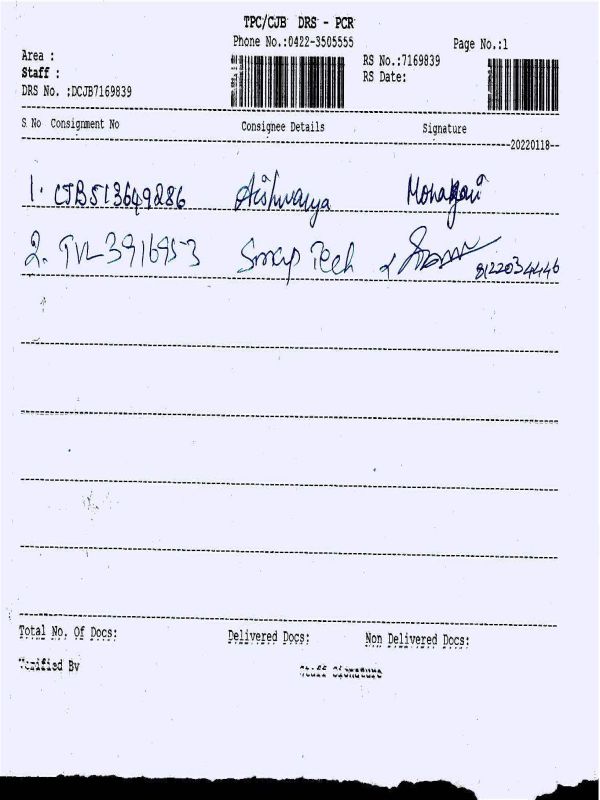 TPC/CJB DRS - PCR
Phone No.:0422-3505555
Page No.:1
Area :
RS No.:7169839
Staff :
RS Date:
DRS No. :DCJB7169839
S No Consignment No Consignee Details Signature
--20220118--
1. CJB513649286 Aishwarya
2. TVL3916953 Tech 8122034446
Total No. Of Docs: Delivered Docs: Non Delivered Docs:
Verified By Staff Signature